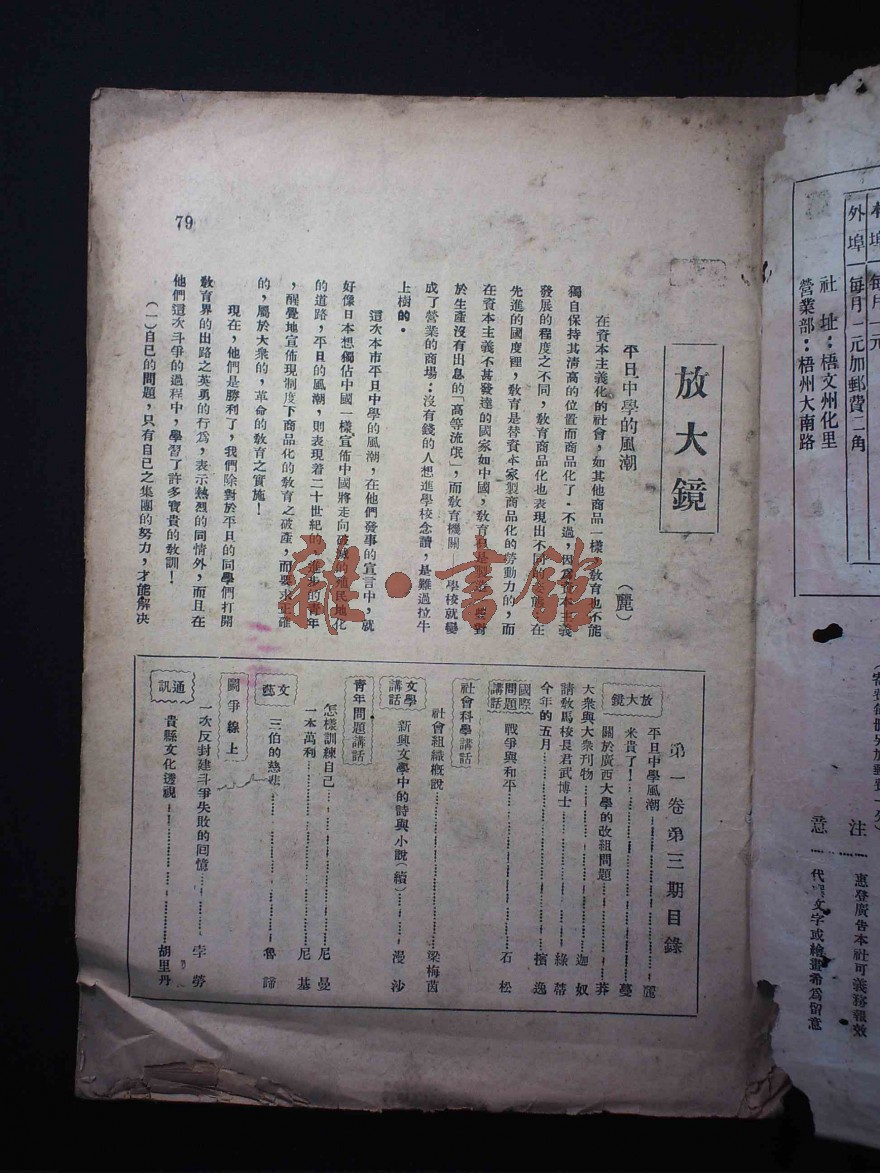 放大鏡
平旦中學的風潮 （麗）
在資本主義化的社會，如其他商品一樣，教育也不能
獨自保持其清高的位置而商品化了。不過，因爲資本主義
發展的程度之不同，教育商品化也表現出不同的姿態。在
先進的國度裡，教育是替資本家製商品化的勞動力的，而
在資本主義不甚發達的國家如中國，教育只是製造一些對
於生產沒有出息的「高等流氓」，而教育機關 學校就變
成了營業的商場：沒有錢的人想進學校念讀，是難過拉牛
上樹的。
這次本市平旦中學的風潮，在他們發事的宣言中，就
好像日本想獨佔中國一樣，宣佈中國將走向破滅的殖民地化
的道路，平旦的風潮，則表現着二十世紀的，進步的青年
，醒覺地宣佈現制度下商品化的教育之破產，而要求正確
的，屬於大衆的，革命的教育之實施！
現在，他們是勝利了，我們除對於平旦的同學們打開
教育界的出路之英勇的行爲，表示熱烈的同情外，而且在
他們這次斗爭的過程中，學習了許多寶貴的教訓！
（一）自己的問題，只有自己之集團的努力，才能解決
79
第一卷第三期目錄
放大鏡
平旦中學風潮……麗
米貴了！……蔓
關於廣西大學的改組問題……莽
大衆與大衆刊物……迦奴
請教馬校長君武博士……綠蒂
今年的五月……檳逸
國際問題講話
戰爭與和平……石松
社會科學講話
社會組織概說……梁梅茵
文學講話
新興文學中的詩與小說（續）……漫沙
青年問題講話
怎樣訓練自己……尼曼
一本萬利……尼基
文藝
三伯的慈悲……魯蹄
鬭爭線上
一次反封建斗爭失敗的回憶……孛勞
通訊
貴縣文化透視……胡里丹
埠 每月一元
外埠 每月一元加郵費二角
社址：梧文州化里
營業部：梧州大南路
注意
惠登廣告本社可義務報效
文字或繪畫希爲留意
雜·書館